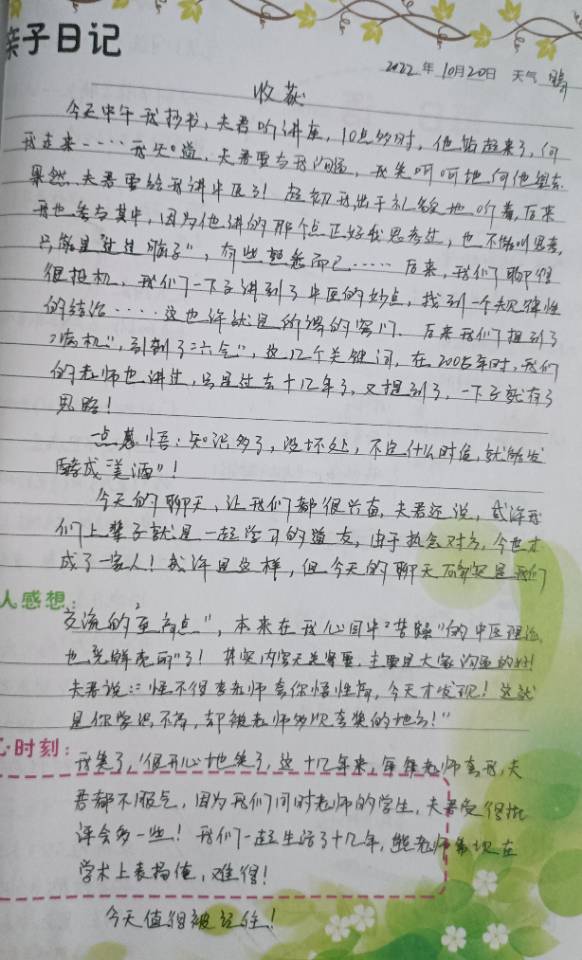 亲子日记
2022年10月20日 天气 晴
收获
今天中午我抄书，夫君听讲座，10点多时，他站起来了，向
我走来……我知道，夫君要与我沟通，我笑呵呵地向他望去
果然夫君要给我讲中医了！起初我出于礼貌地听着，后来
我也参与其中，因为他讲的那个点正好我思考过，也不能叫思考，
只能是“过过脑子”，有些熟悉而已……后来，我们聊得
很投机，我们一下子讲到了中医的妙点，找到一个规律性
的结论……这也许就是所谓的窍门。后来我们提到了
“病机”，到了“六气”，这几个关键词，在2005年时，我们
的老师也讲过，只是过去十几年了，又提到了，一下子就有了
思路！
一点感悟：知识多了，没坏处，不定什么时候，就能发
酵成“美酒”！
今天的聊天，让我们都很兴奋，夫君还说，或许我
们上辈子就是一起学习的道友，由于执念对方，今世才
成了一家人！或许是这样，但今天的聊天确实是我们
人感想：
交流的“至高点”，本来在我心目中“苦躁”的中医理论
也“光鲜亮丽”了！其实内容无关紧要，主要是大家沟通的好！
夫君说：“怪不得老师夸你悟性高，今天才发现！这就
是你学识不高，却被老师多次夸奖的地方！”
心时刻：
我笑了，很开心地笑了，这十几年来，每每老师夸我，夫
君都不服气，因为我们同时老师的学生，夫君受得批
评会多一些！我们一起生活了十几年，能老师 现在
学术上表扬俺，难得！
今天值得被记住！